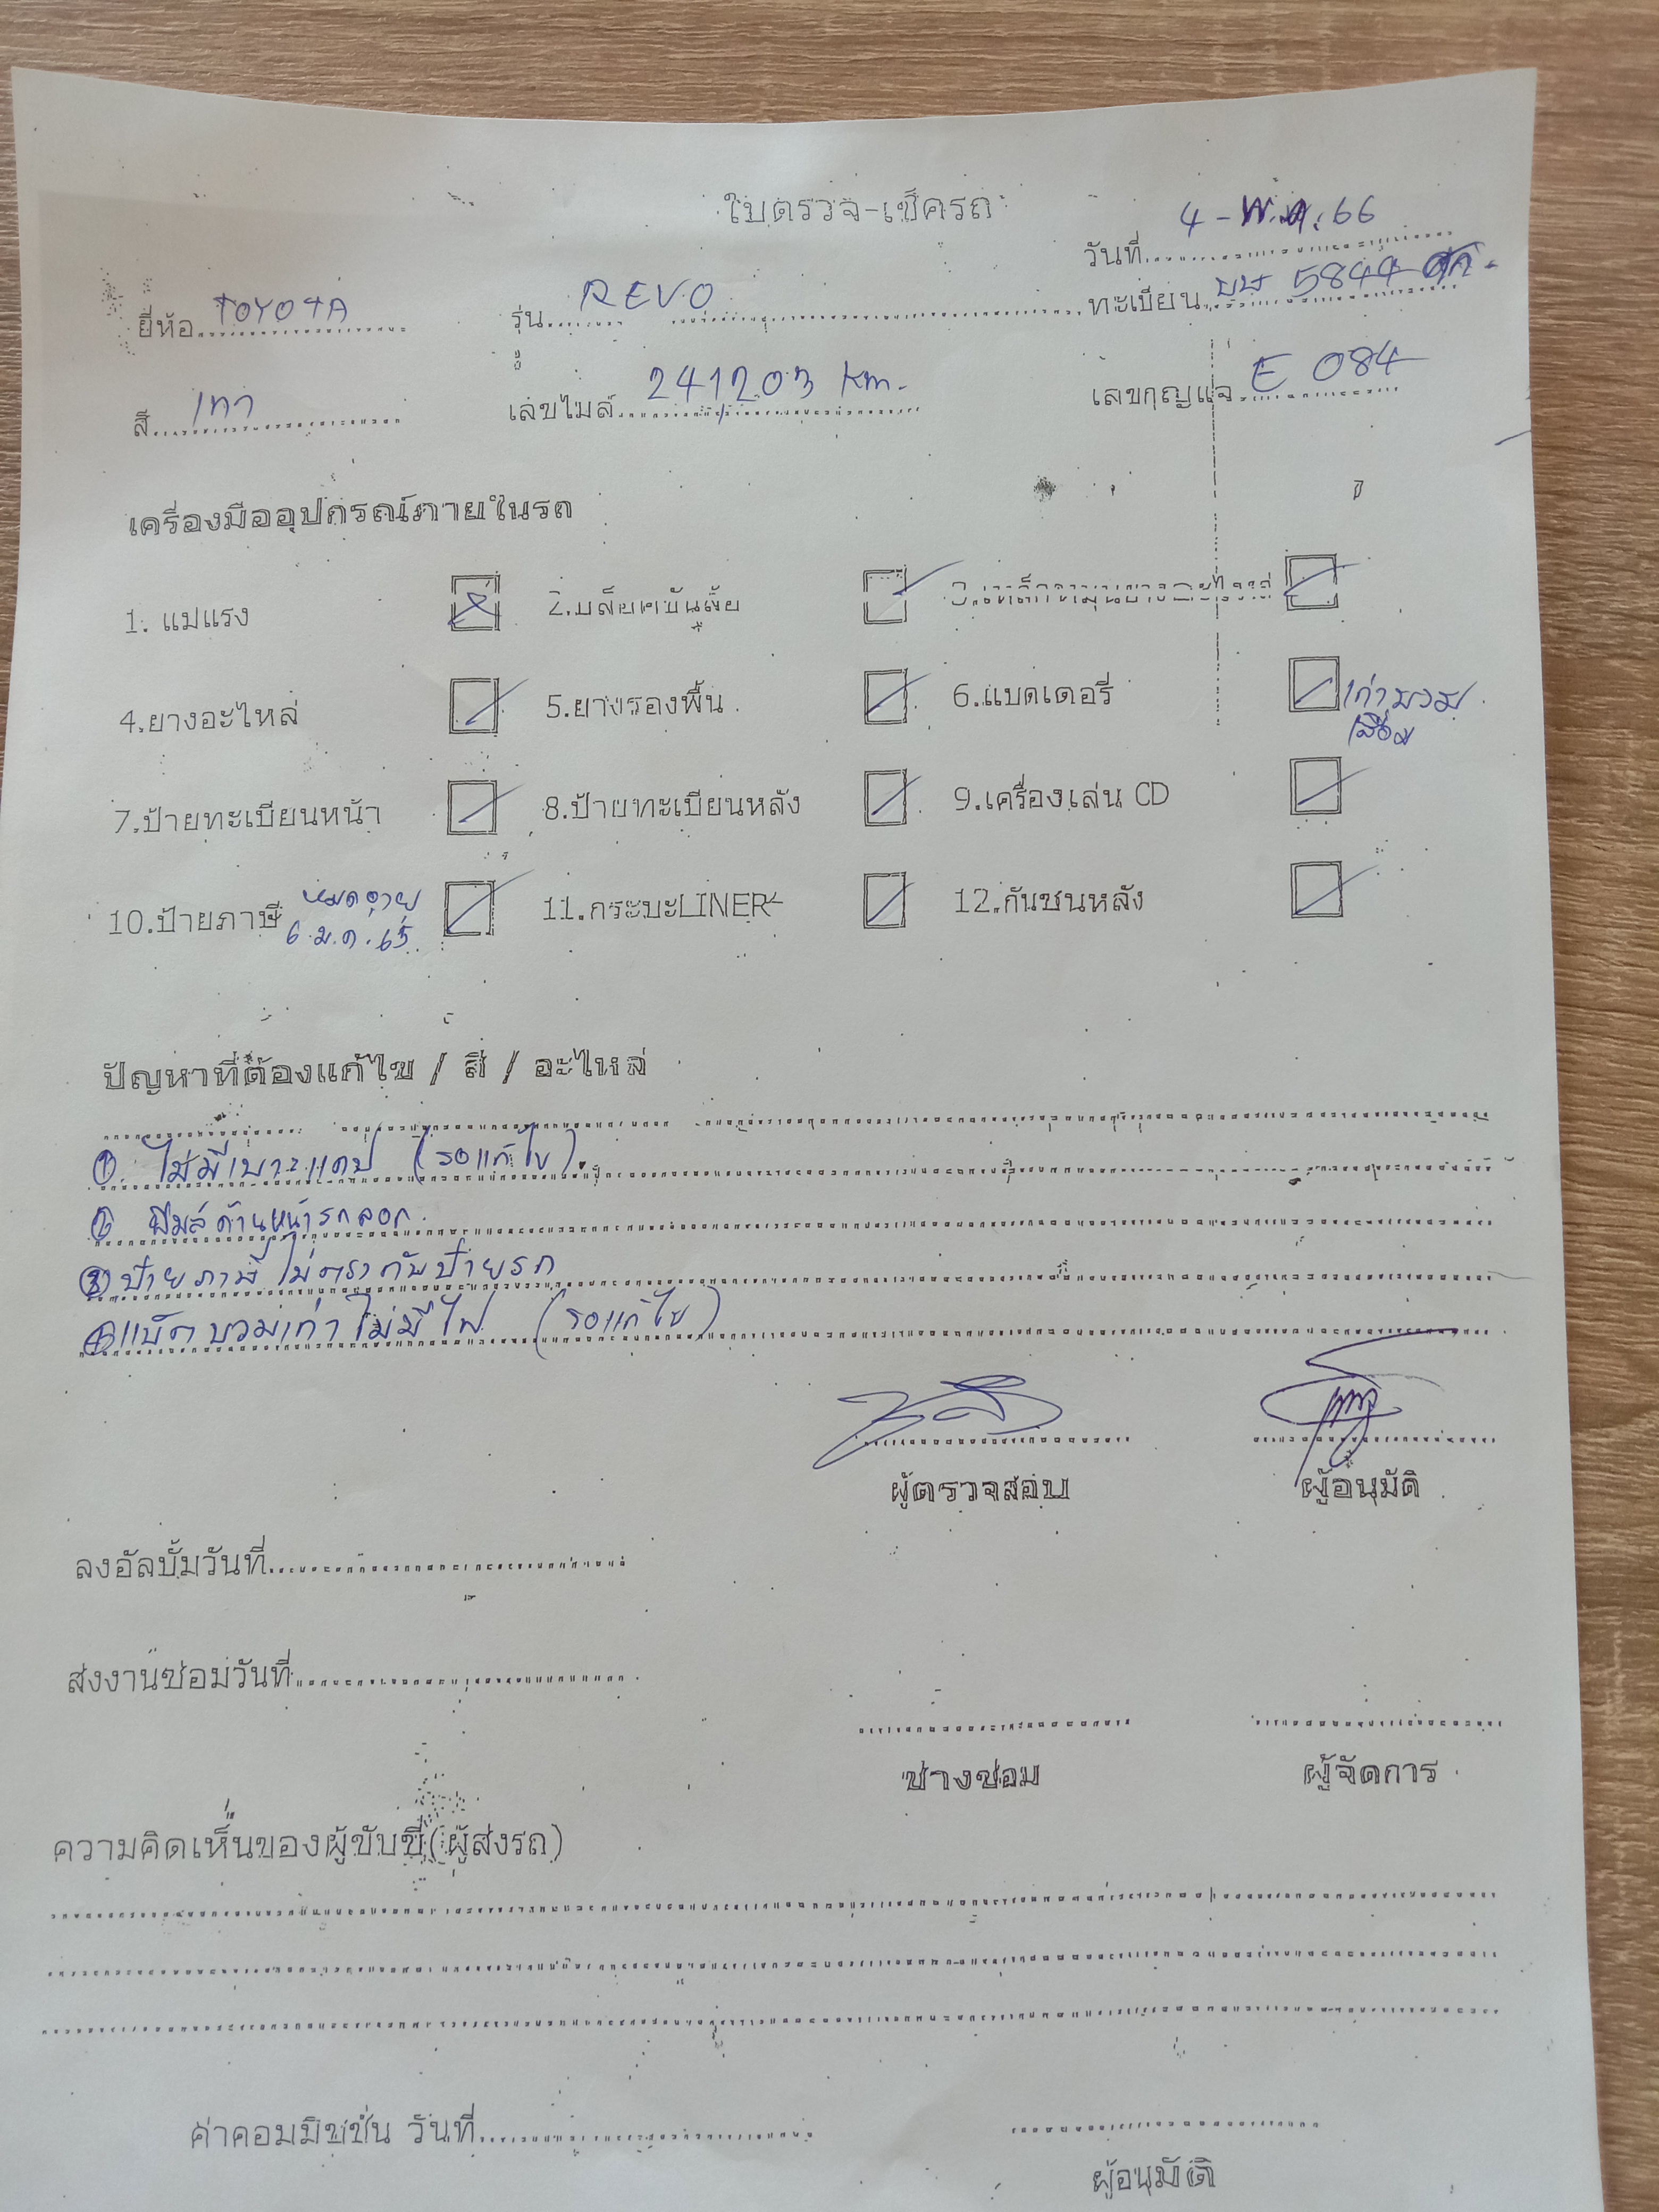 ใบตรวจ-เช็ครถ
วันที่ 4-พ.ค.66
ยี่ห้อ TOYOTA รุ่น REVO ทะเบียน 5844
สี เทา เลขไมล์ 241203 km. เลขกุญแจ E 084
เครื่องมืออุปกรณ์ภายในรถ
1. แม่แรง 2.บล๊อคขันล้อ
4.ยางอะไหล่ 5.ยางรองพื้น 6.แบตเตอรี่ เก่าบวม
เสื่อม
7.ป้ายทะเบียนหน้า 8.ป้ายทะเบียนหลัง 9.เครื่องเล่น CD
10.ป้ายภาษี หมดอายุ 6.ม.ค.65 11.กระบะLINER 12.กันชนหลัง
ปัญหาที่ต้องแก้ไข / สี / อะไหล่
① ไม่มีเบาะแคป (รอแก้ไข).
ฟิมล์ด้านหน้ารถลอก.
③ ป้ายภาษี ไม่ตรงกับป้ายรถ
④ แบ็ตบวมเก่าไม่มีไฟ (รอแก้ไข)
ผู้ตรวจสอบ ผู้อนุมัติ
ลงอัลบั้มวันที่
ส่งงานซ่อมวันที่
ช่างซ่อม ผู้จัดการ
ความคิดเห็นของผู้ขับขี่(ผู้ส่งรถ)
ค่าคอมมิชชั่น วันที่
ผู้อนุมัติ